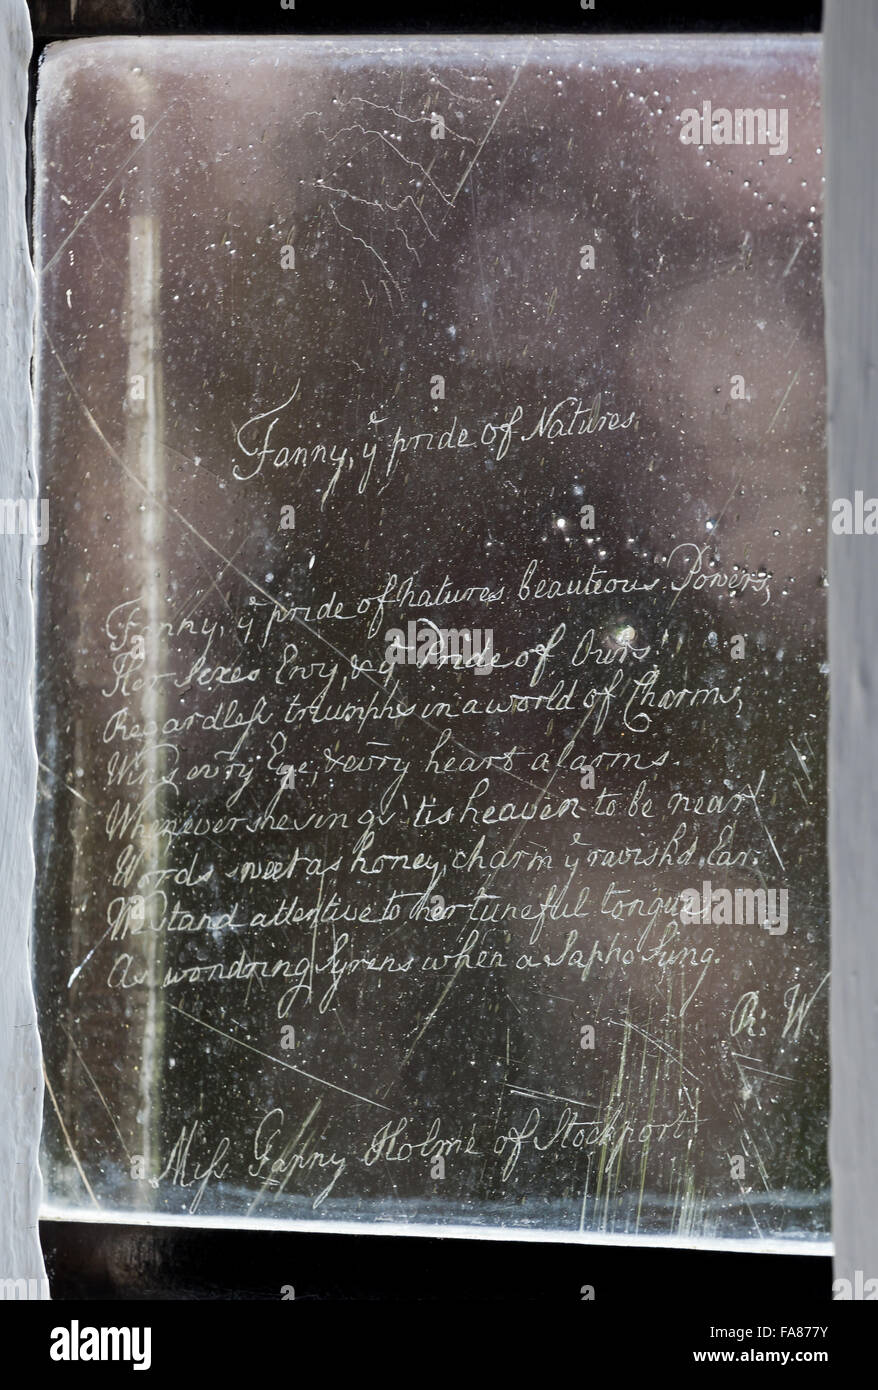 Fanny, yᵉ pride of Natures
Fanny, yᵉ pride of natures beauteous Powers,
Her Sexes Envy, & yᵉ Pride of Ours,
Regardless triumphs in a world of Charms,
Wins ev'ry Eye, & ev'ry heart alarms.
Whenever she sings 'tis heaven to be near
Words sweet as honey, charm yᵉ ravish'd Ear.
We stand attentive to her tuneful tongue,
As wondring Syrens when a Sapho Sung.
R: W
Miss Fanny Holme of Stockport
alamy
Image ID: FA877Y
www.alamy.com